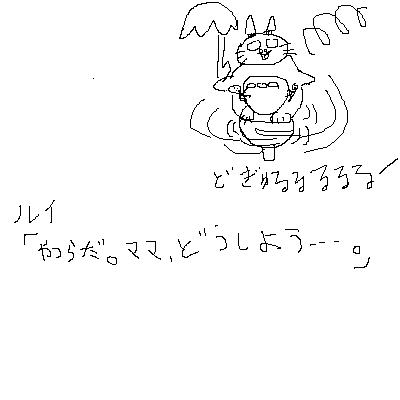 どぎゅるるるるるるー
ルイ
「やつらだ。ママ、どうしよう---。」